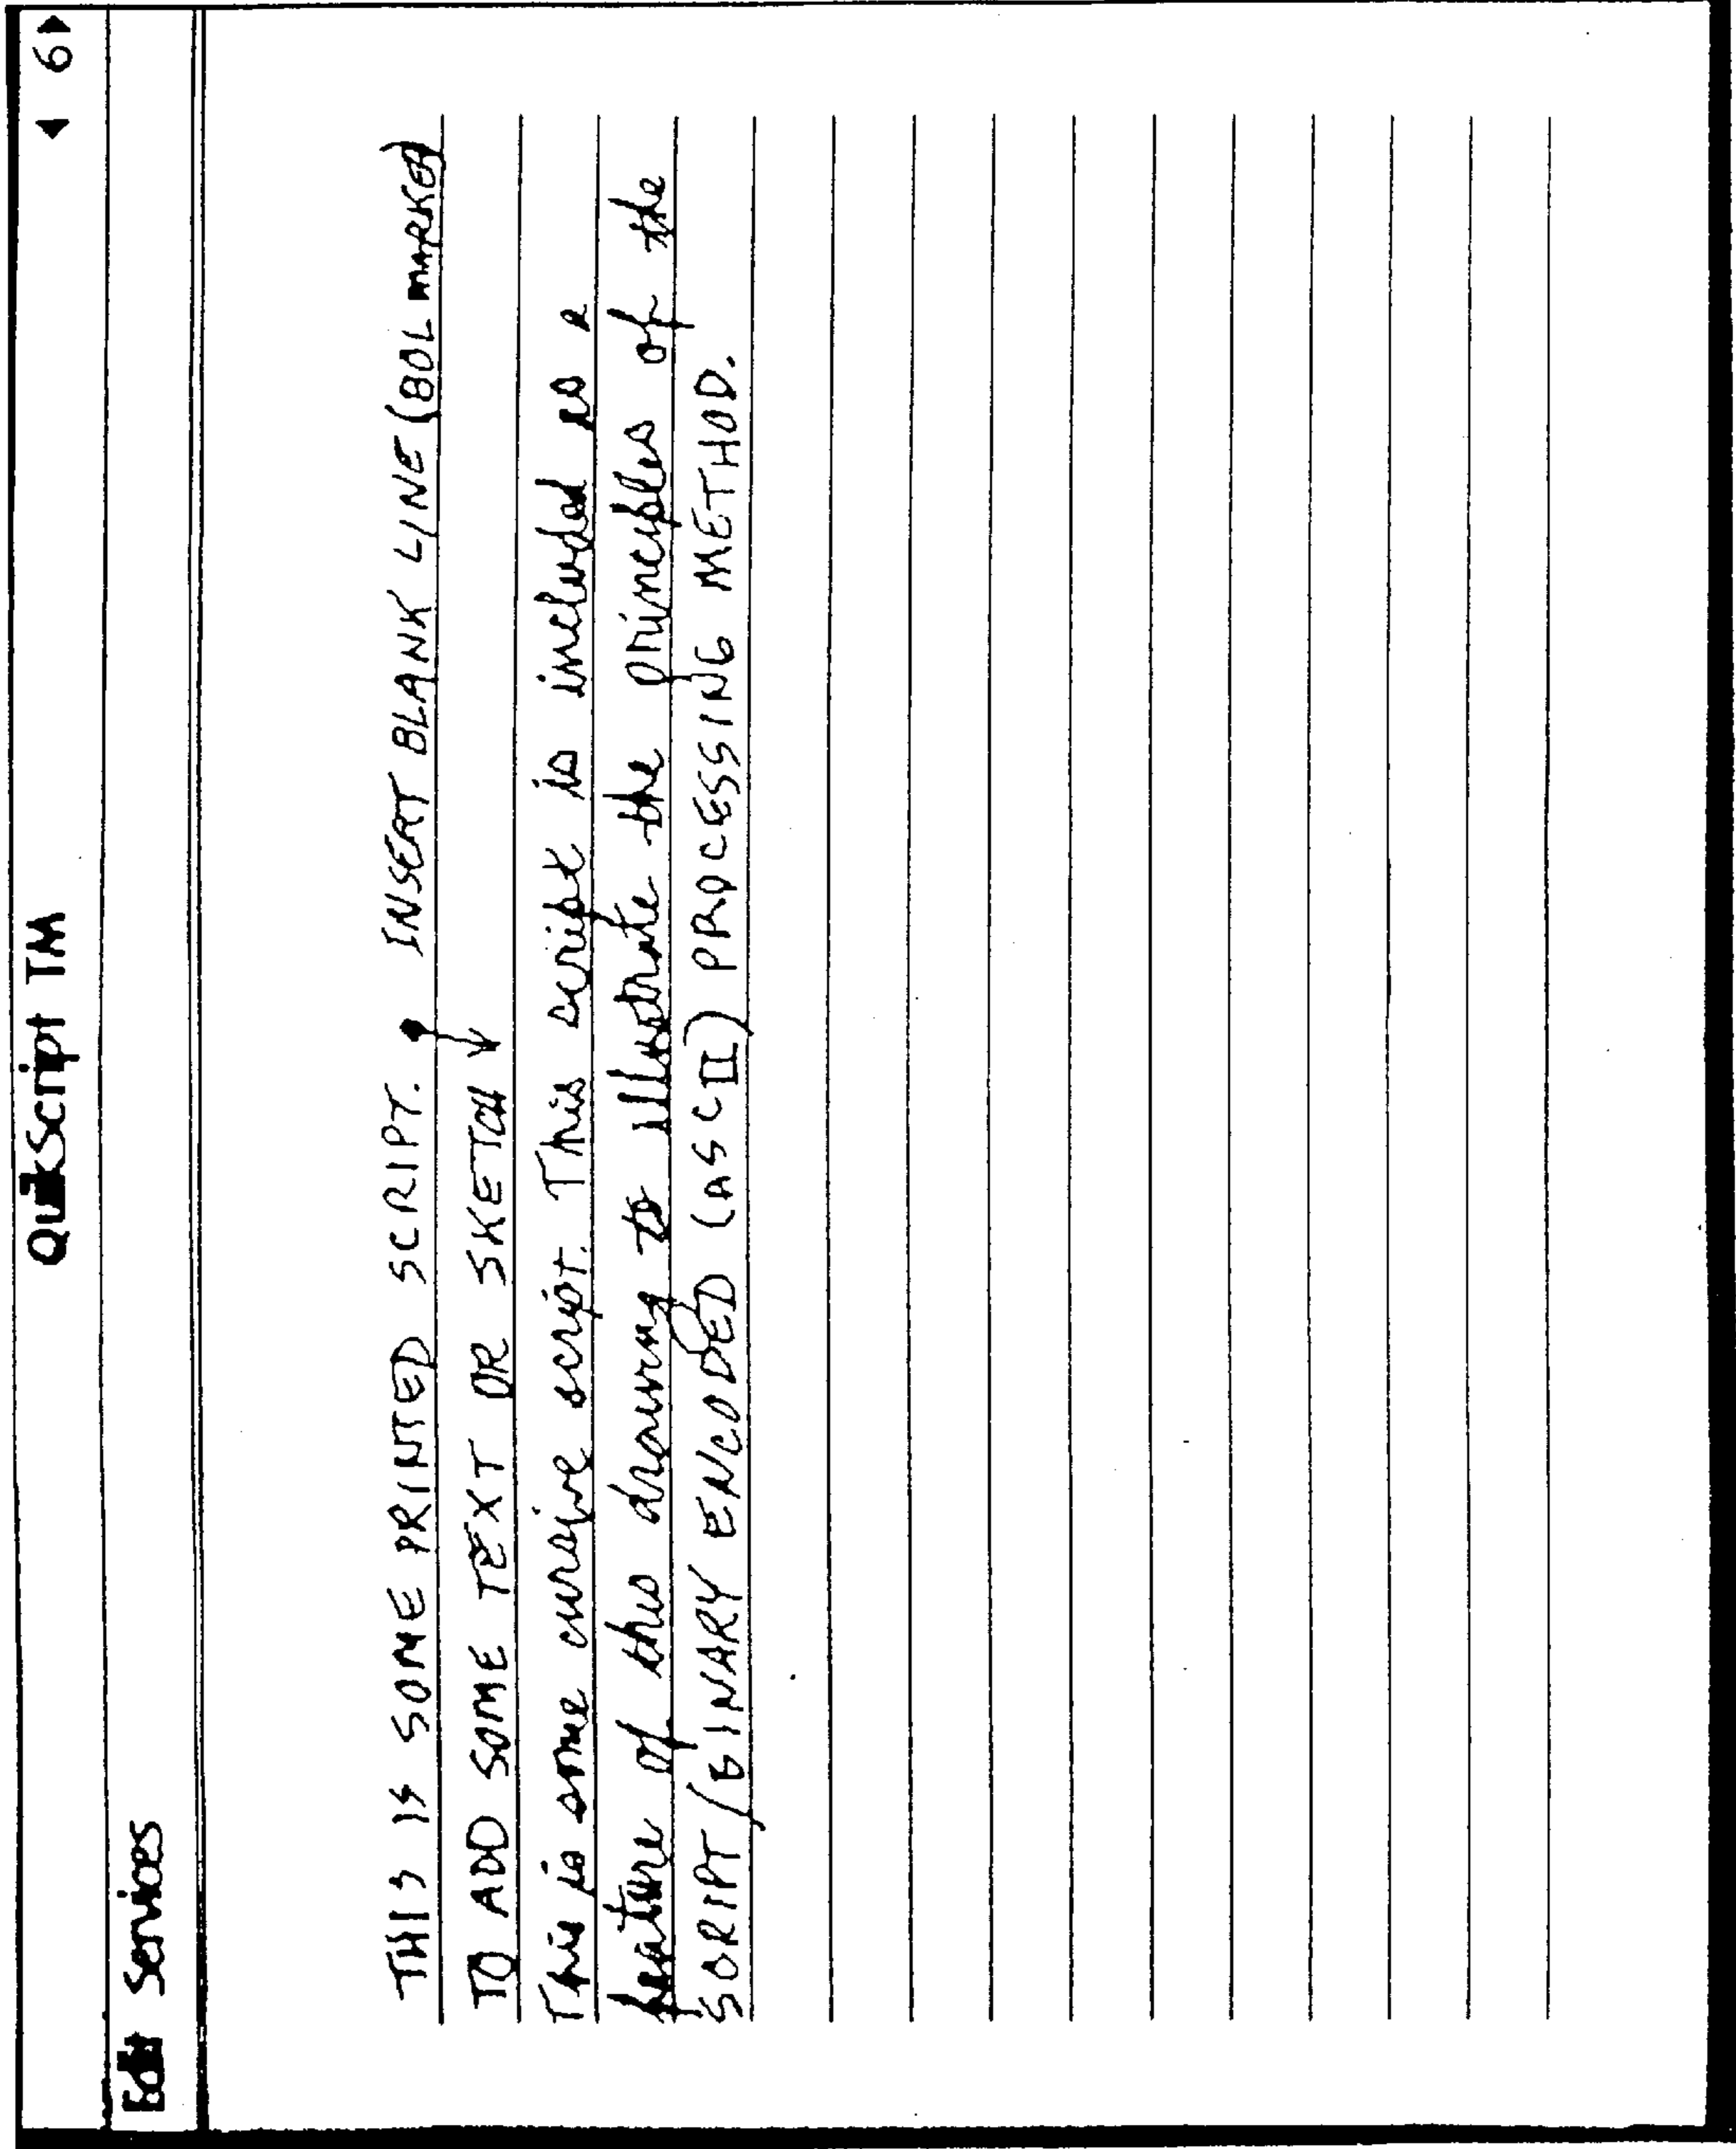 QuikScript TM ◄ 6►
Edit Services
THIS IS SOME PRINTED SCRIPT. INSERT BLANK LINE (BOL MARKED)
TO ADD SOME TEXT OR SKETCH
This is some cursive script. This script is included as a
feature of this drawing to illustrate the principles of the
SCRIPT/BINARY ENCODED (ASCII) PROCESSING METHOD.